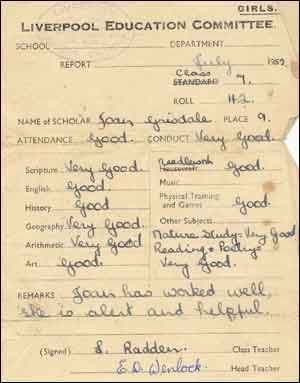 GIRLS.
LIVERPOOL EDUCATION COMMITTEE.
SCHOOL DEPARTMENT
REPORT July 1952
Class
STANDARD 7.
ROLL 42
NAME OF SCHOLAR Joan Grisdale PLACE 9.
ATTENDANCE Good. CONDUCT Very Good.
Scripture Very Good.
English Good.
History Good
Geography Very Good.
Arithmetic Very Good
Art Good.
Needlework
Housewifery Good.
Music
Physical Training
and Games Good.
Other Subjects
Nature Study = Very Good
Reading & Poetry =
Very Good.
REMARKS Joan has worked well,
she is alert and helpful.
(Signed) S. Radden. Class Teacher
E.D. Wenlock. Head Teacher